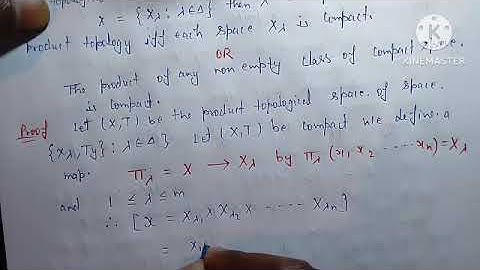 X = {Xλ : λ∈Δ} then X
product topology iff each space Xλ is compact.
OR
The product of any non empty class of compact space.
is compact.
Proof Let (X,T) be the product topological space. of space.
{Xλ,Tγ} : λ∈Δ} Let (X,T) be compact we define. a
map. πλ = X → Xλ by πλ (x1, x2 ----- xn) = Xλ
and 1 ≤ λ ≤ m
∴ [X = Xλ1 × Xλ2 × ----- Xλn]
= X
K
KINEMASTER